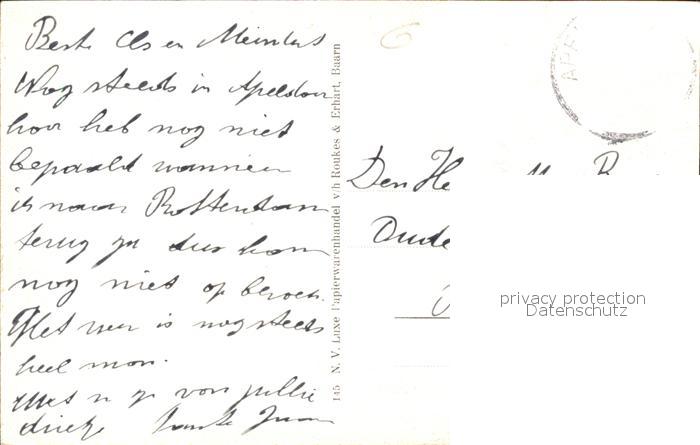 Beste Els en Meindert
Nog steeds in Apeldoor
hoor heb nog niet
bepaald wanneer
ik naar Rotterdam
terug ga dus kom
nog niet op bezoek.
Het weer is nog steeds
heel mooi.
van jullie
Tante
145 N. V. Luxe Papierwarenhandel v/h Roukes & Erhart, Baarn
6
APE
Den He M. B
Oude
privacy protection
Datenschutz